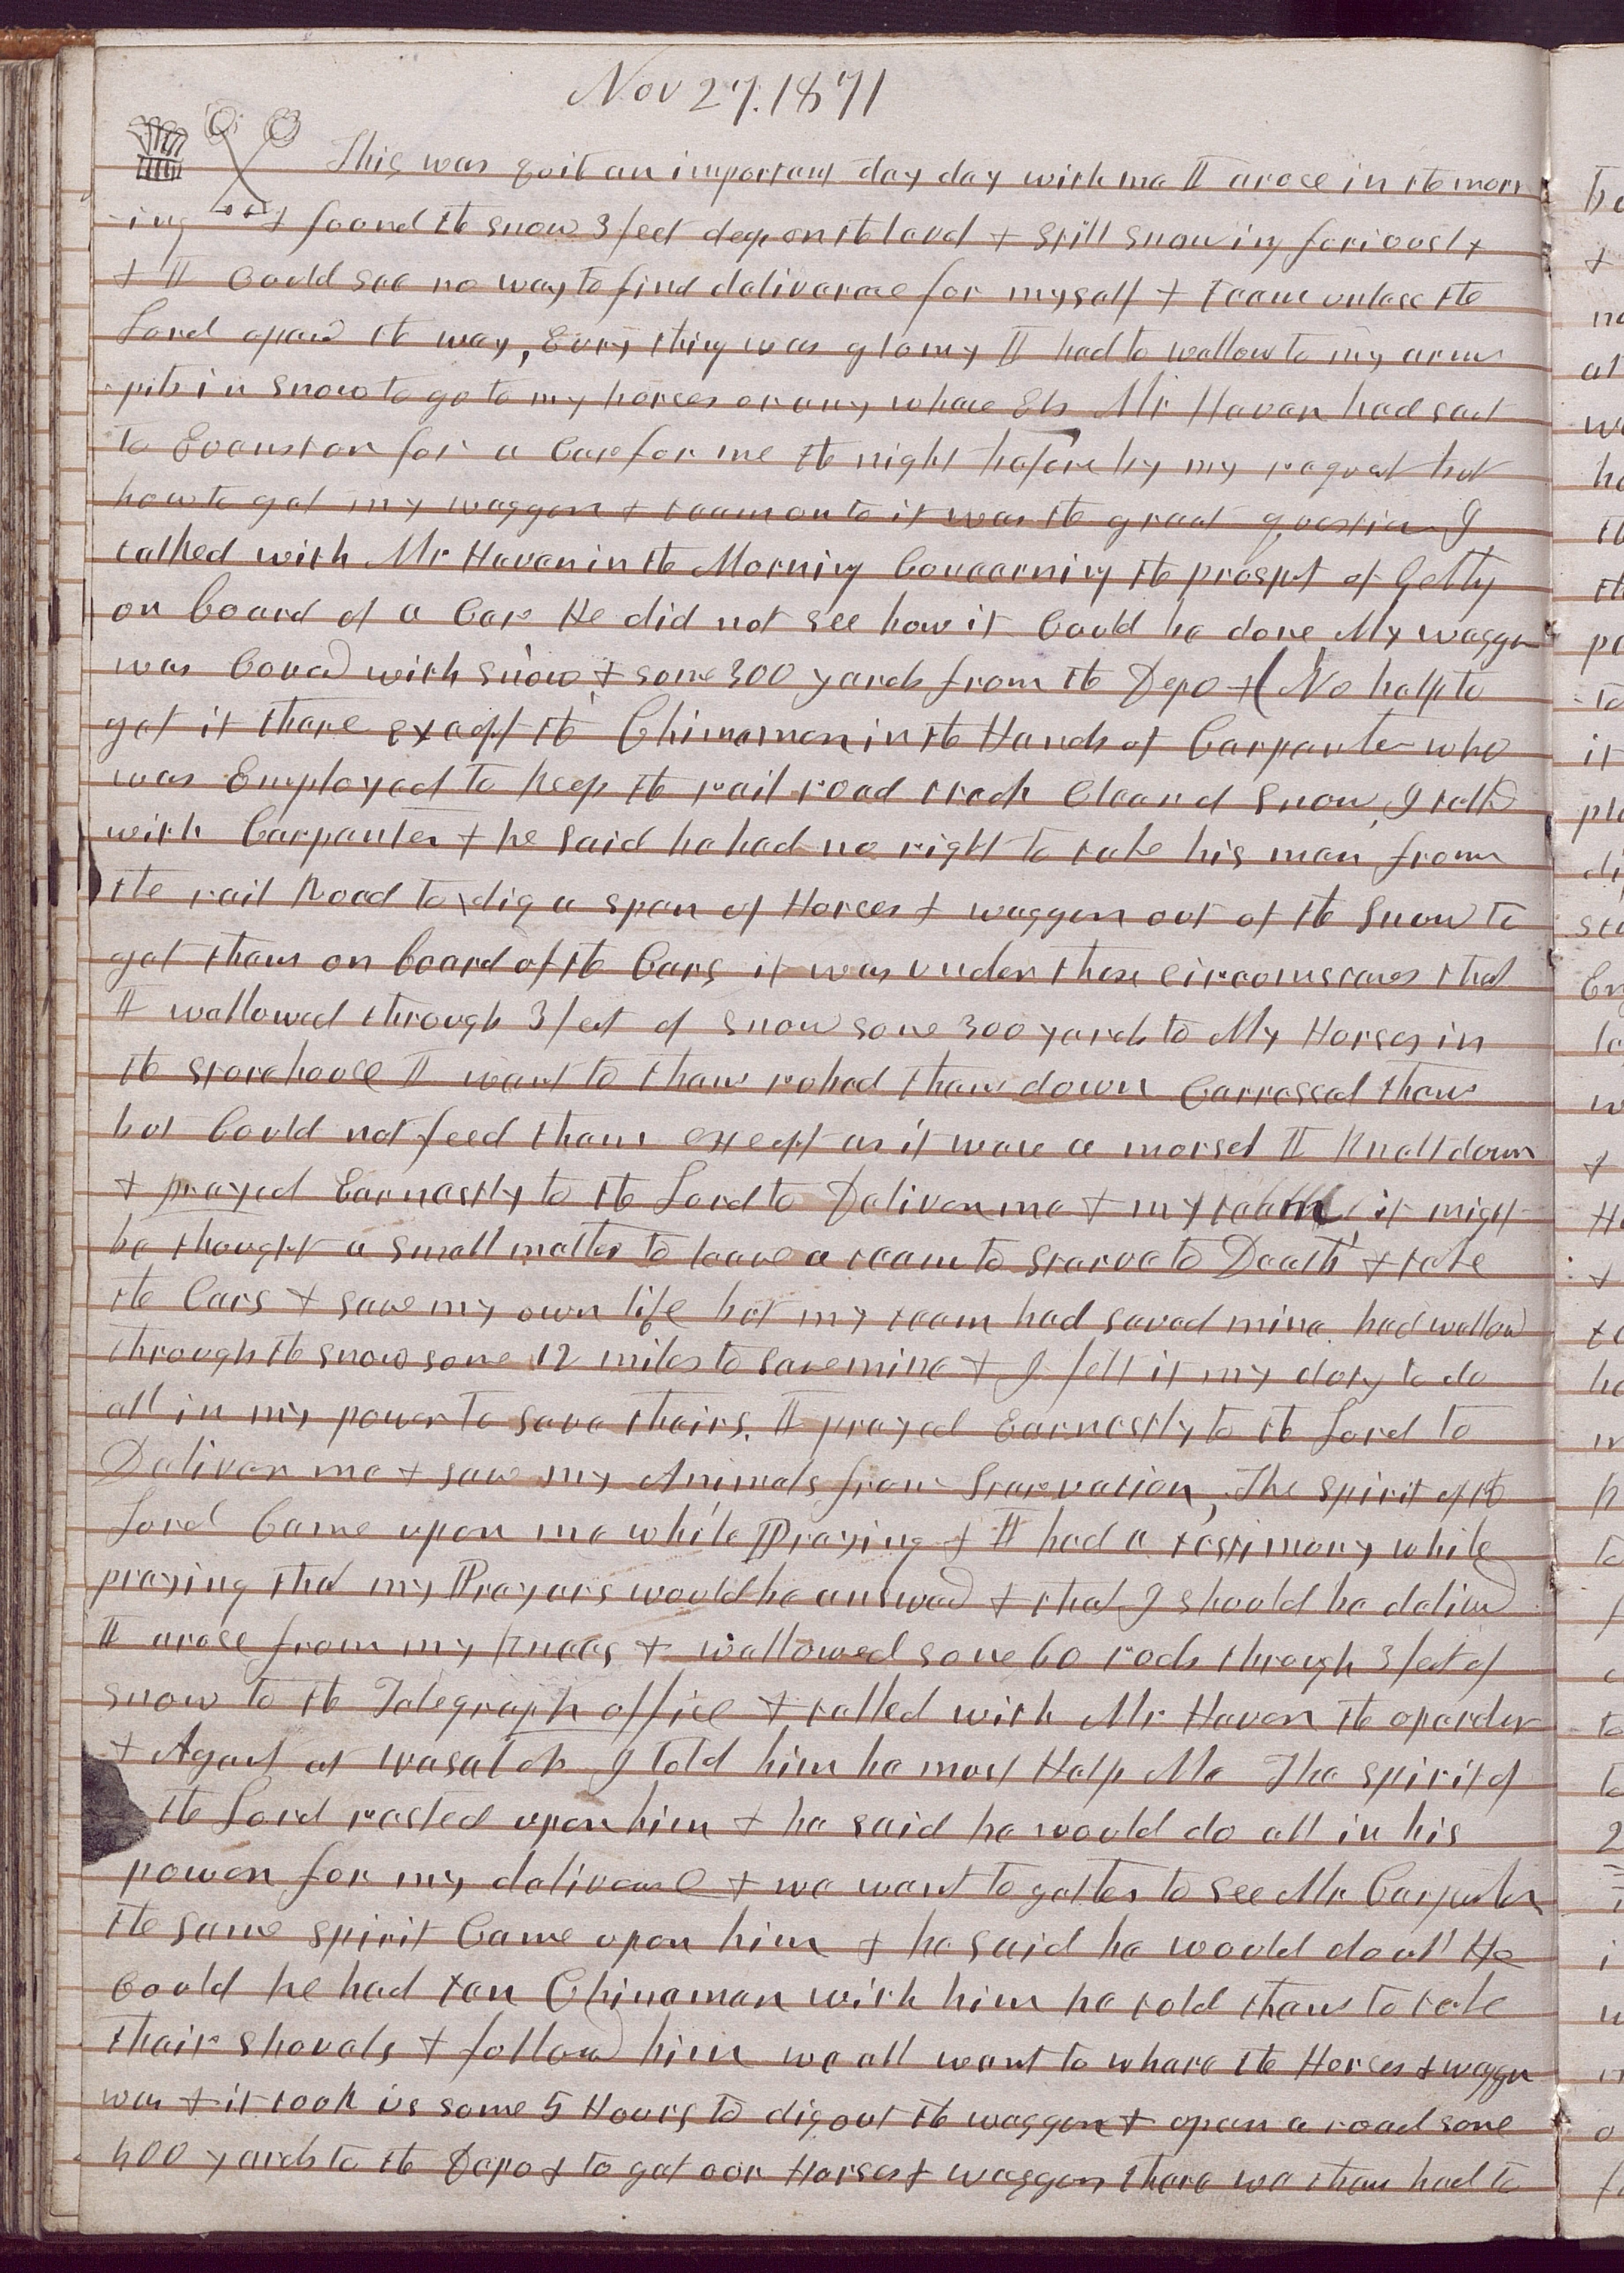 Nov 27. 1871
This was quit an important day day with me I arose in the morn
-ing & found the snow 3 feet deep on the lavel & still snowing furiously
& I Could see no way to find deliverance for myself & team unless the
Lord opened the way, Evry thing was glomy I had to wallow to my arm
pits in snow to go to my horses or any whare Els Mr Haven had sent
to Evanston for a Car for me the night before by my request but
how to get my waggon & team on to it was the great question I
talked with Mr Haven in the Morning Concerning the prospet of Getting
on board of a Car He did not see how it Could be done My waggon
was Coverd with snow & some 300 yards from the Depot No help to
get it thare except the Chinamen in the Hands of Carpenter who
was Employed to keep the rail road track Cleared Snow, I talked
with Carpenter & he said he had no right to take his men from
the rail Road to dig a span of Horses & waggon out of the Snow to
get them on board of the Cars it was under these circumstances that
I wallowed through 3 feet of snow some 300 yards to My Horses in
the storehouse I went to them rubed them down Carressed them
but Could not feed them except as it ware a morsel I Knelt down
& prayed Earnestly to the Lord to Deliver me & my team it might
be thought a small matter to leave a team to starve to Death & take
the Cars & save my own life but my team had saved mine had wallowed
through the snow some 12 miles to save mine & I felt it my duty to do
all in my power to save thairs. I prayed Earnestly to the Lord to
Deliver me & save my Animals from Starvation, The spirit of the
Lord Came upon me while Praying & I had a testimony while
praying that my Prayers would be answerd & that I should be deliverd
I arose from my knees & wallowed some 60 rods through 3 feet of
snow to the Telegraph office & talked with Mr Haven the operator
& Agent at Wasatch I told him he must Help Me The spirit of
the Lord rested upon him & he said he would do all in his
power for my deliverance & we went to gether to see Mr Carpenter
the same spirit Came upon him & he said he would do all He
Could he had ten Chinaman with him he told them to take
thair shovels & follow him we all went to whare the Horses & waggon
was & it took us some 5 Hours to dig out the waggon & open a road some
400 yards to the Depot to get our Horses & waggon thare we then had to